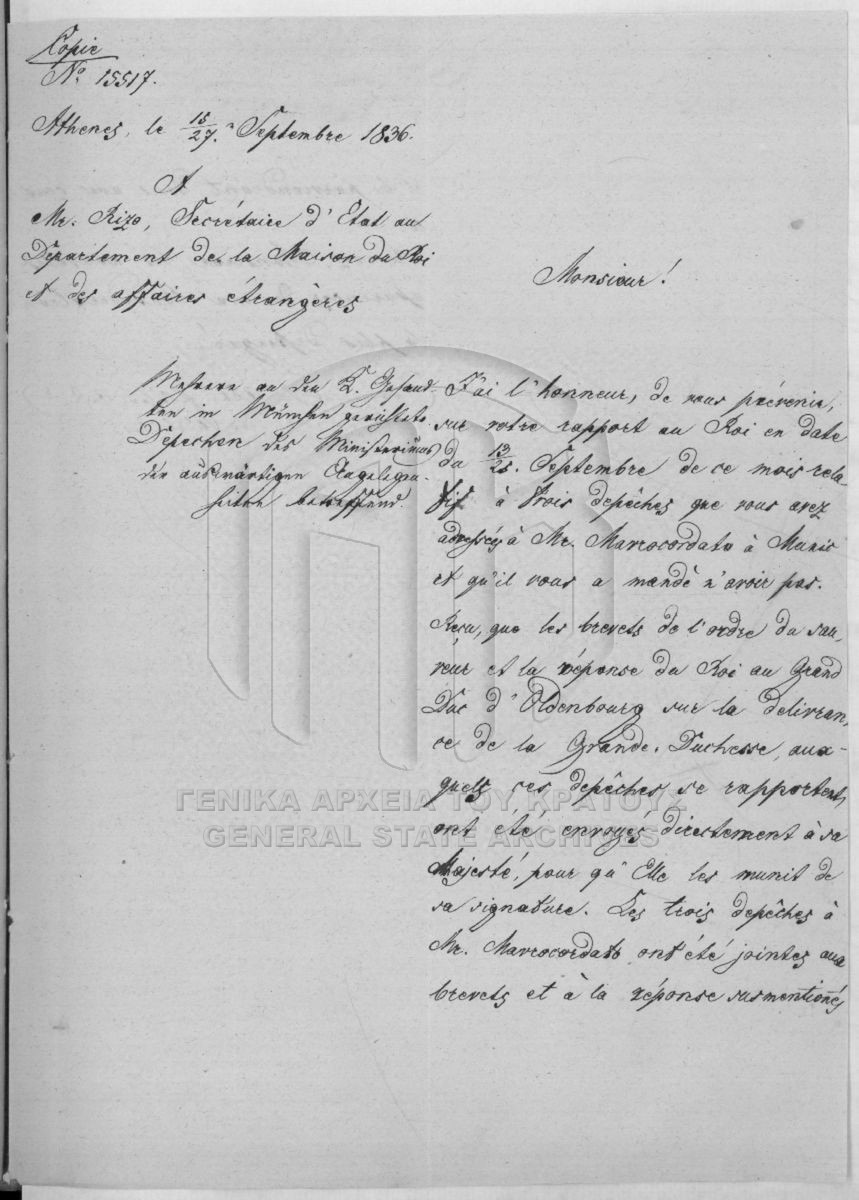 Copie
No. 15517.
Athenes, le 15/27. Septembre 1836.
A
Mr. Rizo, Secrétaire d'Etat au
Département de la Maison du Roi
et des affaires étrangères
Monsieur!
Mehrere an den K. Gesand-
ten in München gerichtete
Depechen des Ministeriums
der auswärtigen Angelegen-
heiten betreffend.
J'ai l'honneur, de vous prévenir,
sur votre rapport au Roi en date
du 13/25. Septembre de ce mois rela-
tif à trois depêches que vous avez
adressées à Mr. Mavrocordato à Munic
et qu'il vous a mandè n'avoir pas.
Reçu, que les brevets de l'ordre du sau-
veur et la réponse du Roi au Grand
Duc d'Oldenbourg sur la delivran-
ce de la Grande-Duchesse, aux-
quels ces depêches se rapportent,
ont été envoyés directement à sa
Majesté, pour qu'Elle les munit de
sa signature. Les trois depêches à
Mr. Mavrocordato ont été jointes aux
brevets et à la réponse susmentionés
ΓΕΝΙΚΑ ΑΡΧΕΙΑ ΤΟΥ ΚΡΑΤΟΥΣ
GENERAL STATE ARCHIVES